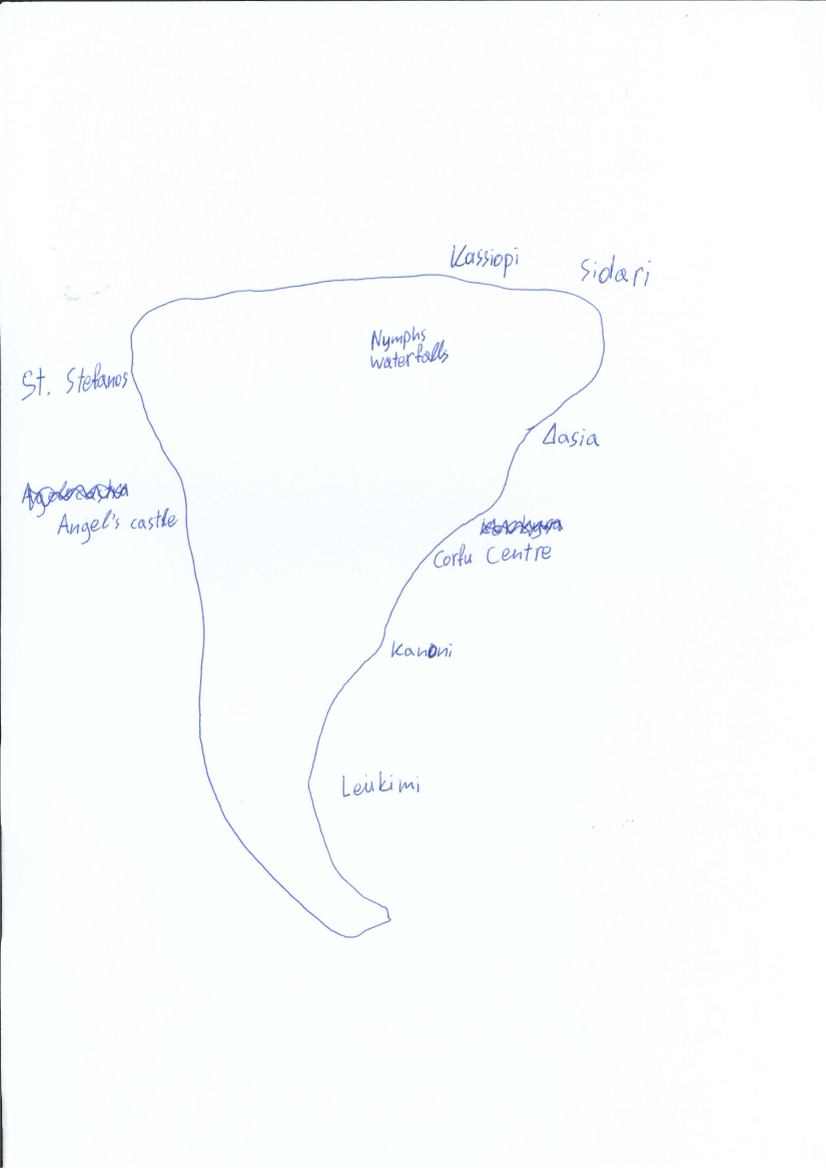 Kassiopi
Sidari
Nymphs
waterfalls
St. Stefanos
Δasia
Angel's castle
Corfu Centre
Kanoni
Leukimi